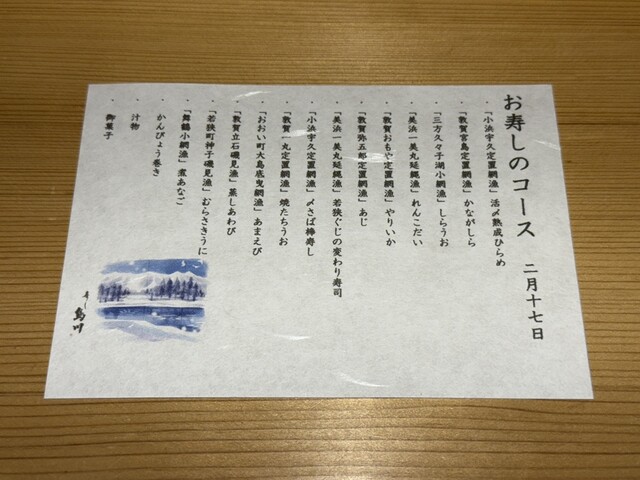 お寿しのコース　二月十七日
・「小浜宇久定置網漁」活〆熟成ひらめ
・「敦賀宮島定置網漁」かながしら
・「三方久々子湖小網漁」しらうお
・「美浜一美丸延縄漁」れんこだい
・「敦賀おもや定置網漁」やりいか
・「敦賀弥五郎定置網漁」あじ
・「美浜一美丸延縄漁」若狭ぐじの変わり寿司
・「小浜宇久定置網漁」〆さば棒寿し
・「敦賀一丸定置網漁」焼たちうお
・「おおい町大島底曳網漁」あまえび
・「敦賀立石磯見漁」蒸しあわび
・「若狭町神子磯見漁」むらさきうに
・「舞鶴小網漁」煮あなご
・かんぴょう巻き
・汁物
・御菓子